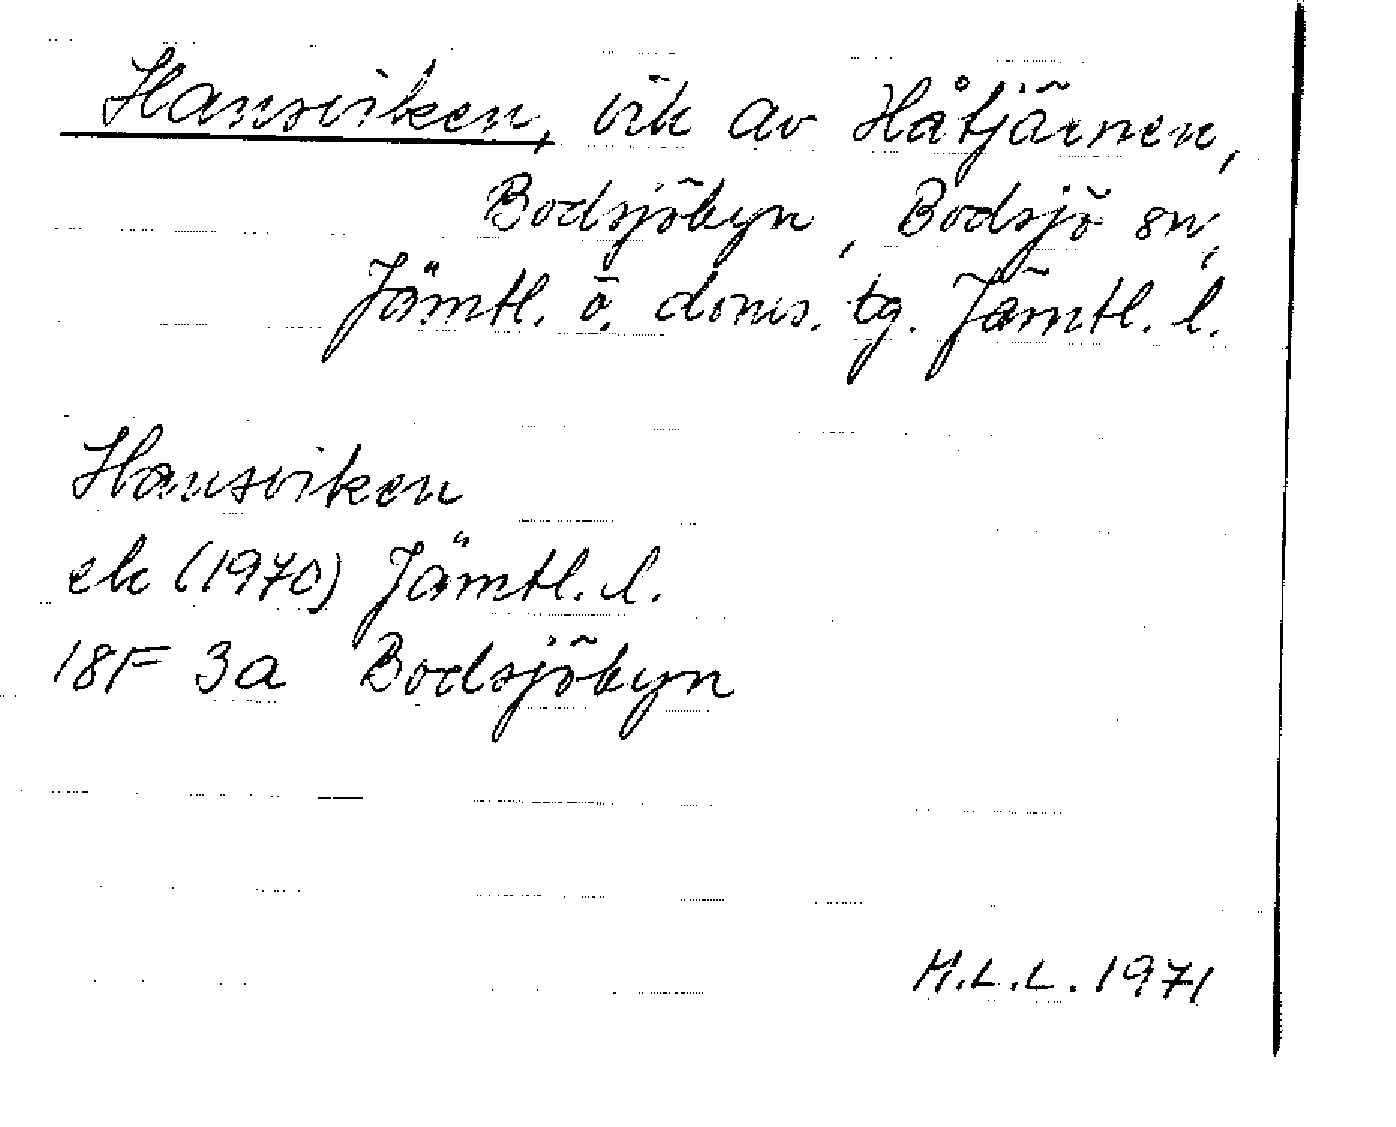 Hansviken, vik av Håtjärnen,
Bodsjöbyn, Bodsjö sn,
Jämtl. ö. doms. tg. Jämtl. l.
Hansviken
ek (1970) Jämtl. l.
18F 3a Bodsjöbyn
M.L.L. 1971